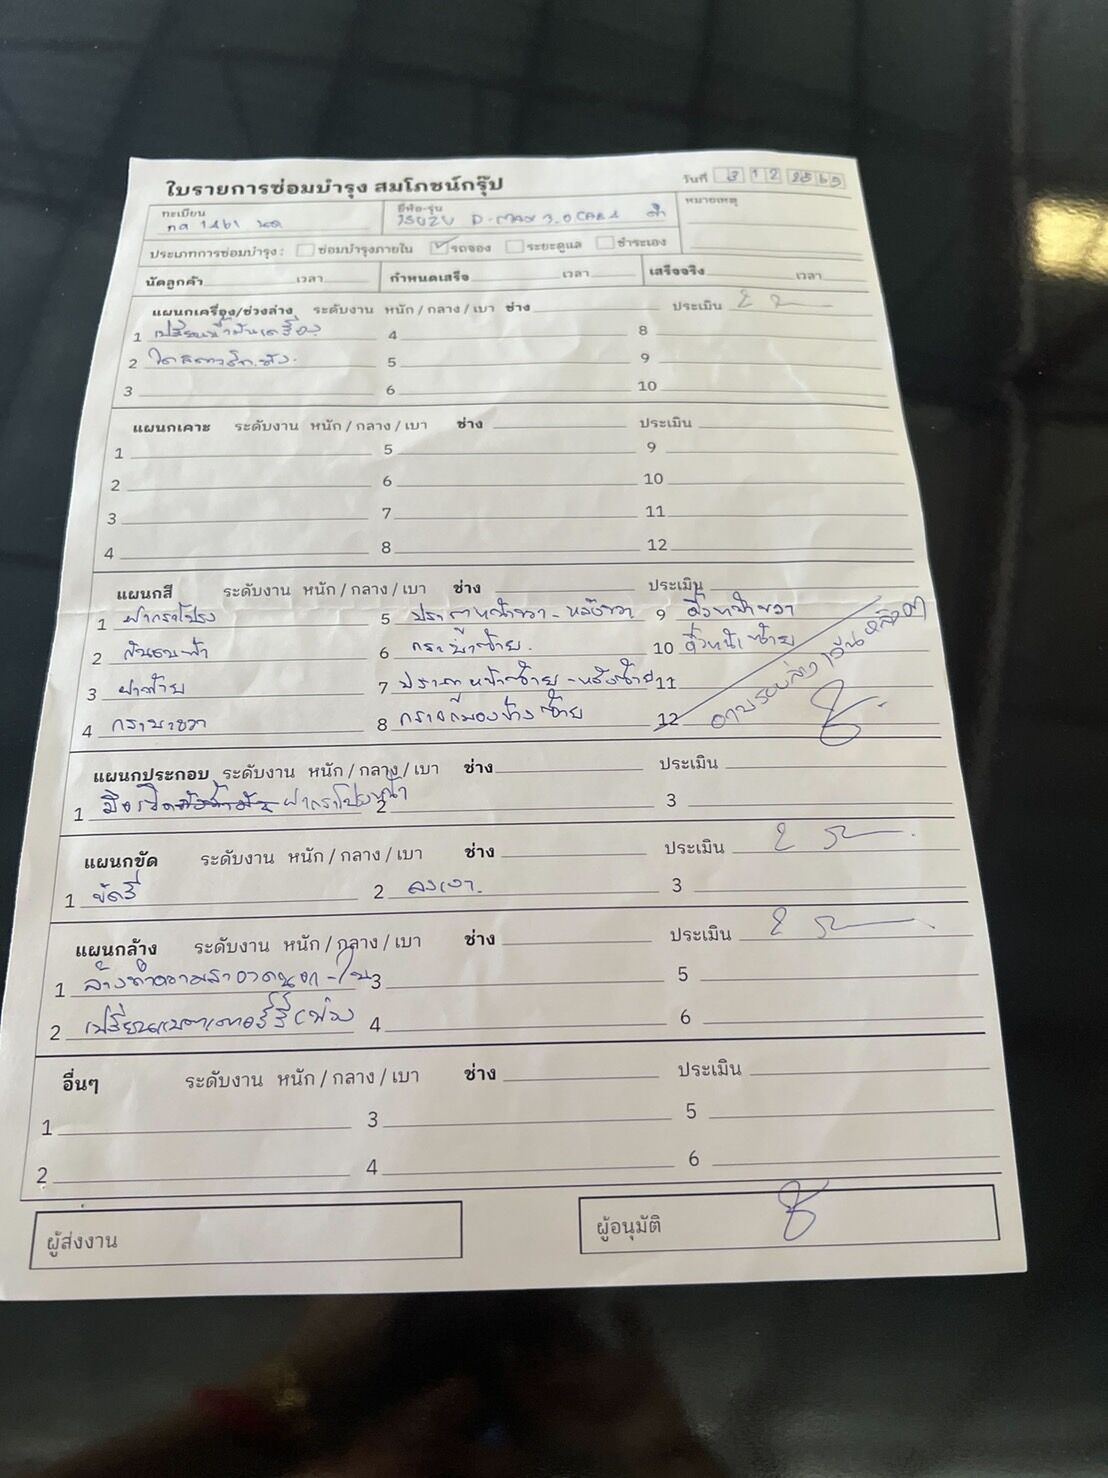 ใบรายการซ่อมบำรุง สมโภชน์กรุ๊ป
วันที่ 3 12 2569
ทะเบียน
ยี่ห้อ-รุ่น
หมายเหตุ
ISUZU D-MAX 3.0 CAB4 ดำ
ประเภทการซ่อมบำรุง : ซ่อมบำรุงภายใน รถจอง ระยะดูแล ชำระเอง
นัดลูกค้า เวลา กำหนดเสร็จ เวลา เสร็จจริง เวลา
แผนกเครื่อง/ช่วงล่าง ระดับงาน หนัก / กลาง / เบา ช่าง ประเมิน
1 เปลี่ยนน้ำมันเครื่อง 4 8
2 5 9
3 6 10
แผนกเคาะ ระดับงาน หนัก / กลาง / เบา ช่าง ประเมิน
1 5 9
2 6 10
3 7 11
4 8 12
แผนกสี ระดับงาน หนัก / กลาง / เบา ช่าง ประเมิน
1 ฝากระโปรง 5 ประตูหน้าขวา - หลังขวา 9 คิ้วหน้าขวา
2 กันชนหน้า 6 กระบะซ้าย 10 คิ้วหน้าซ้าย
3 ฝาท้าย 7 ประตูหน้าซ้าย - หลังซ้าย 11
4 กระบะขวา 8 กระจกมองข้างซ้าย 12
แผนกประกอบ ระดับงาน หนัก / กลาง / เบา ช่าง ประเมิน
1 มือเปิด ฝากระโปรงหน้า 2 3
แผนกขัด ระดับงาน หนัก / กลาง / เบา ช่าง ประเมิน
1 ขัดสี 2 ลงเงา 3
แผนกล้าง ระดับงาน หนัก / กลาง / เบา ช่าง ประเมิน
1 ล้างทำความสะอาดนอก - ใน 3 5
2 เปลี่ยนแบตเตอร์รี่ 4 6
อื่นๆ ระดับงาน หนัก / กลาง / เบา ช่าง ประเมิน
1 3 5
2 4 6
ผู้ส่งงาน
ผู้อนุมัติ